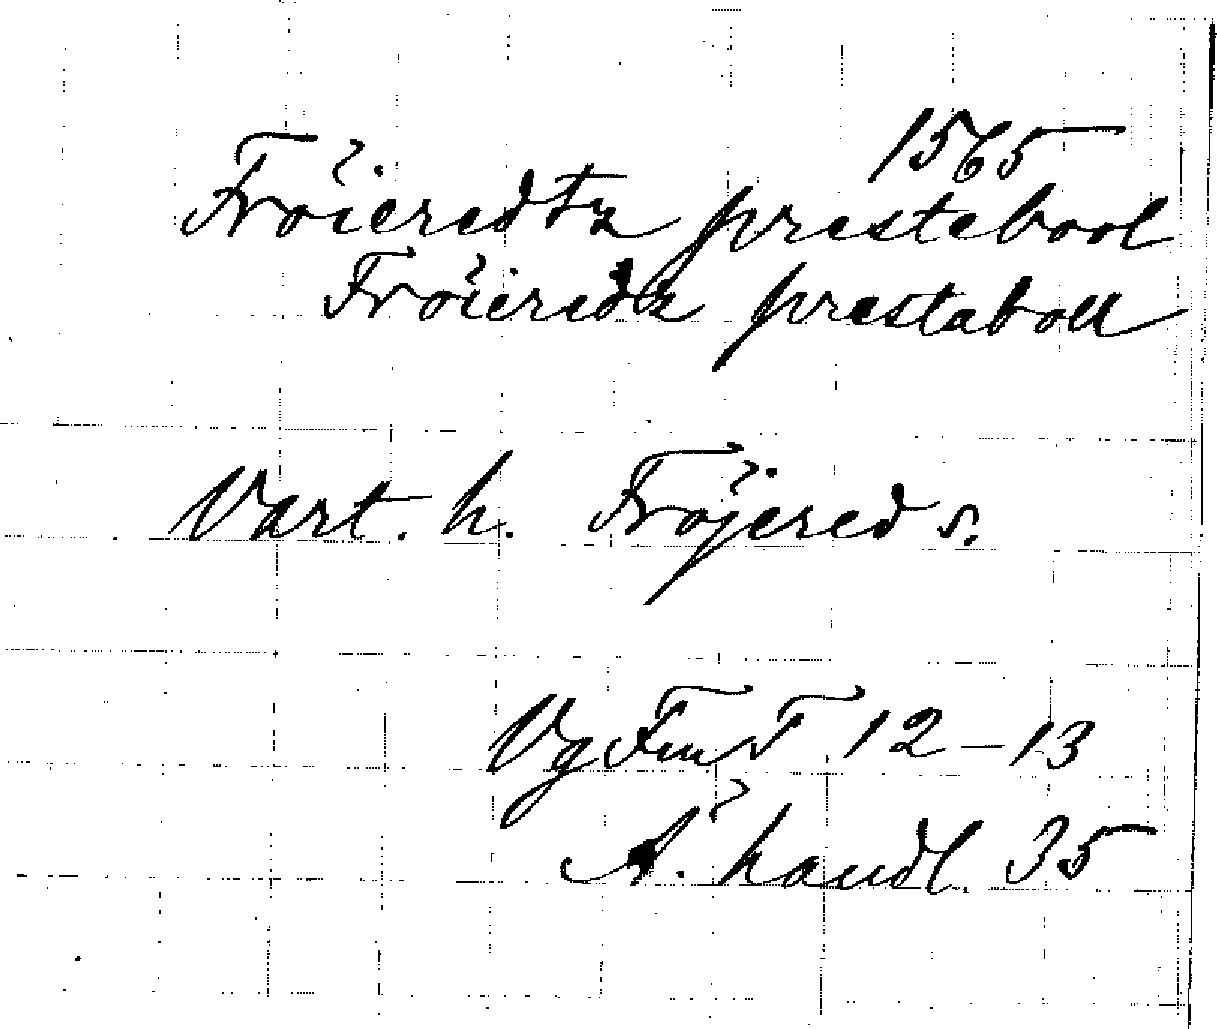 1565
Fröieredtz prestebool
Fröieredz prestaboll
Vart. h. Fröjered s.
Vg FmT 12-13
Å. handl. 35